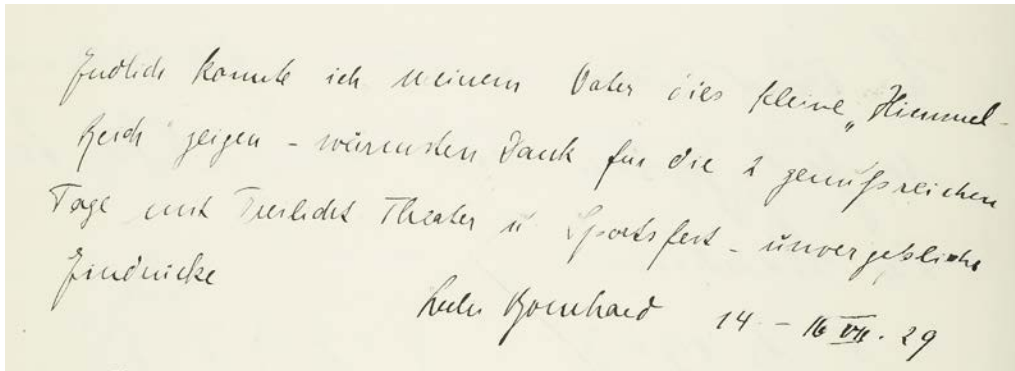 Endlich konnte ich meinem Vater dies kleine „Himmel-
Reich zeigen - wärmsten Dank für die 2 genußreichen
Tage mit Theater u Sportsfest - unvergeßliche
Eindrücke
14 - 16 VII. 29